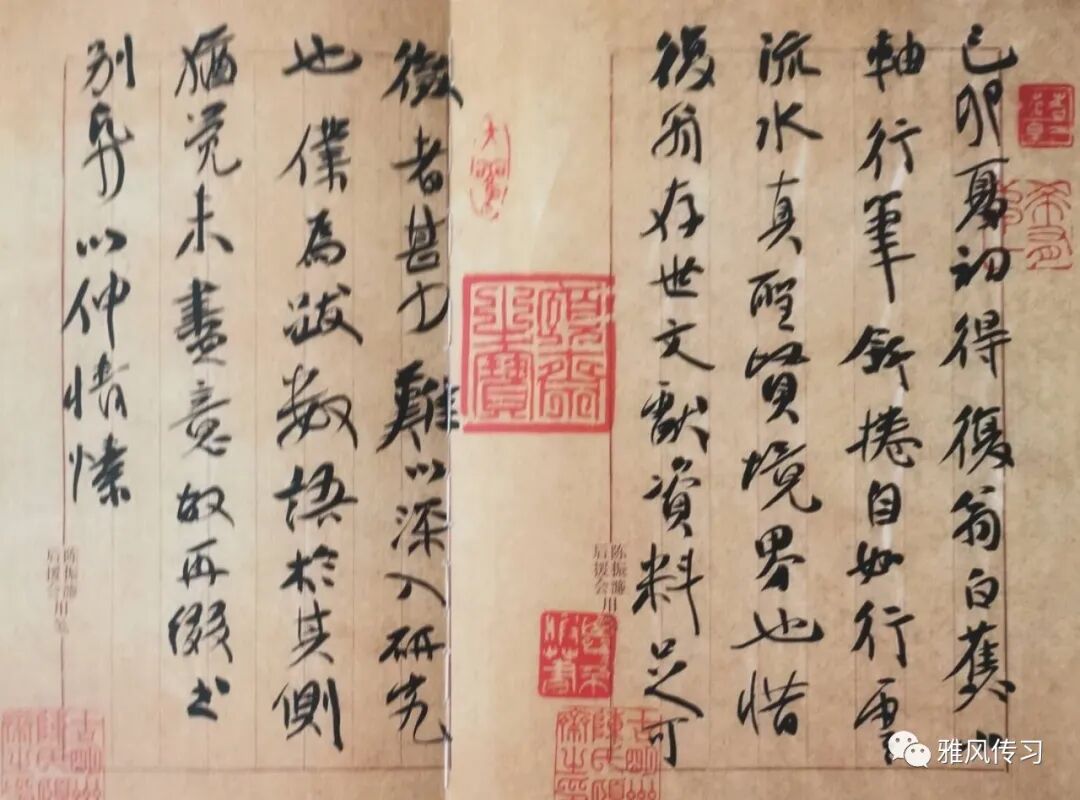 己卯夏初得復翁白蕉小
軸行筆舒捲自如行雲
流水真聖賢境界也惜
復翁存世文獻資料足可
徵者甚少難以深入研究
也僅為跋數語於其側
猶覺未盡意故再綴書
別册以伸情愫
陈振濂用笺
后援会
陈振濂用
后援会
雅风传习